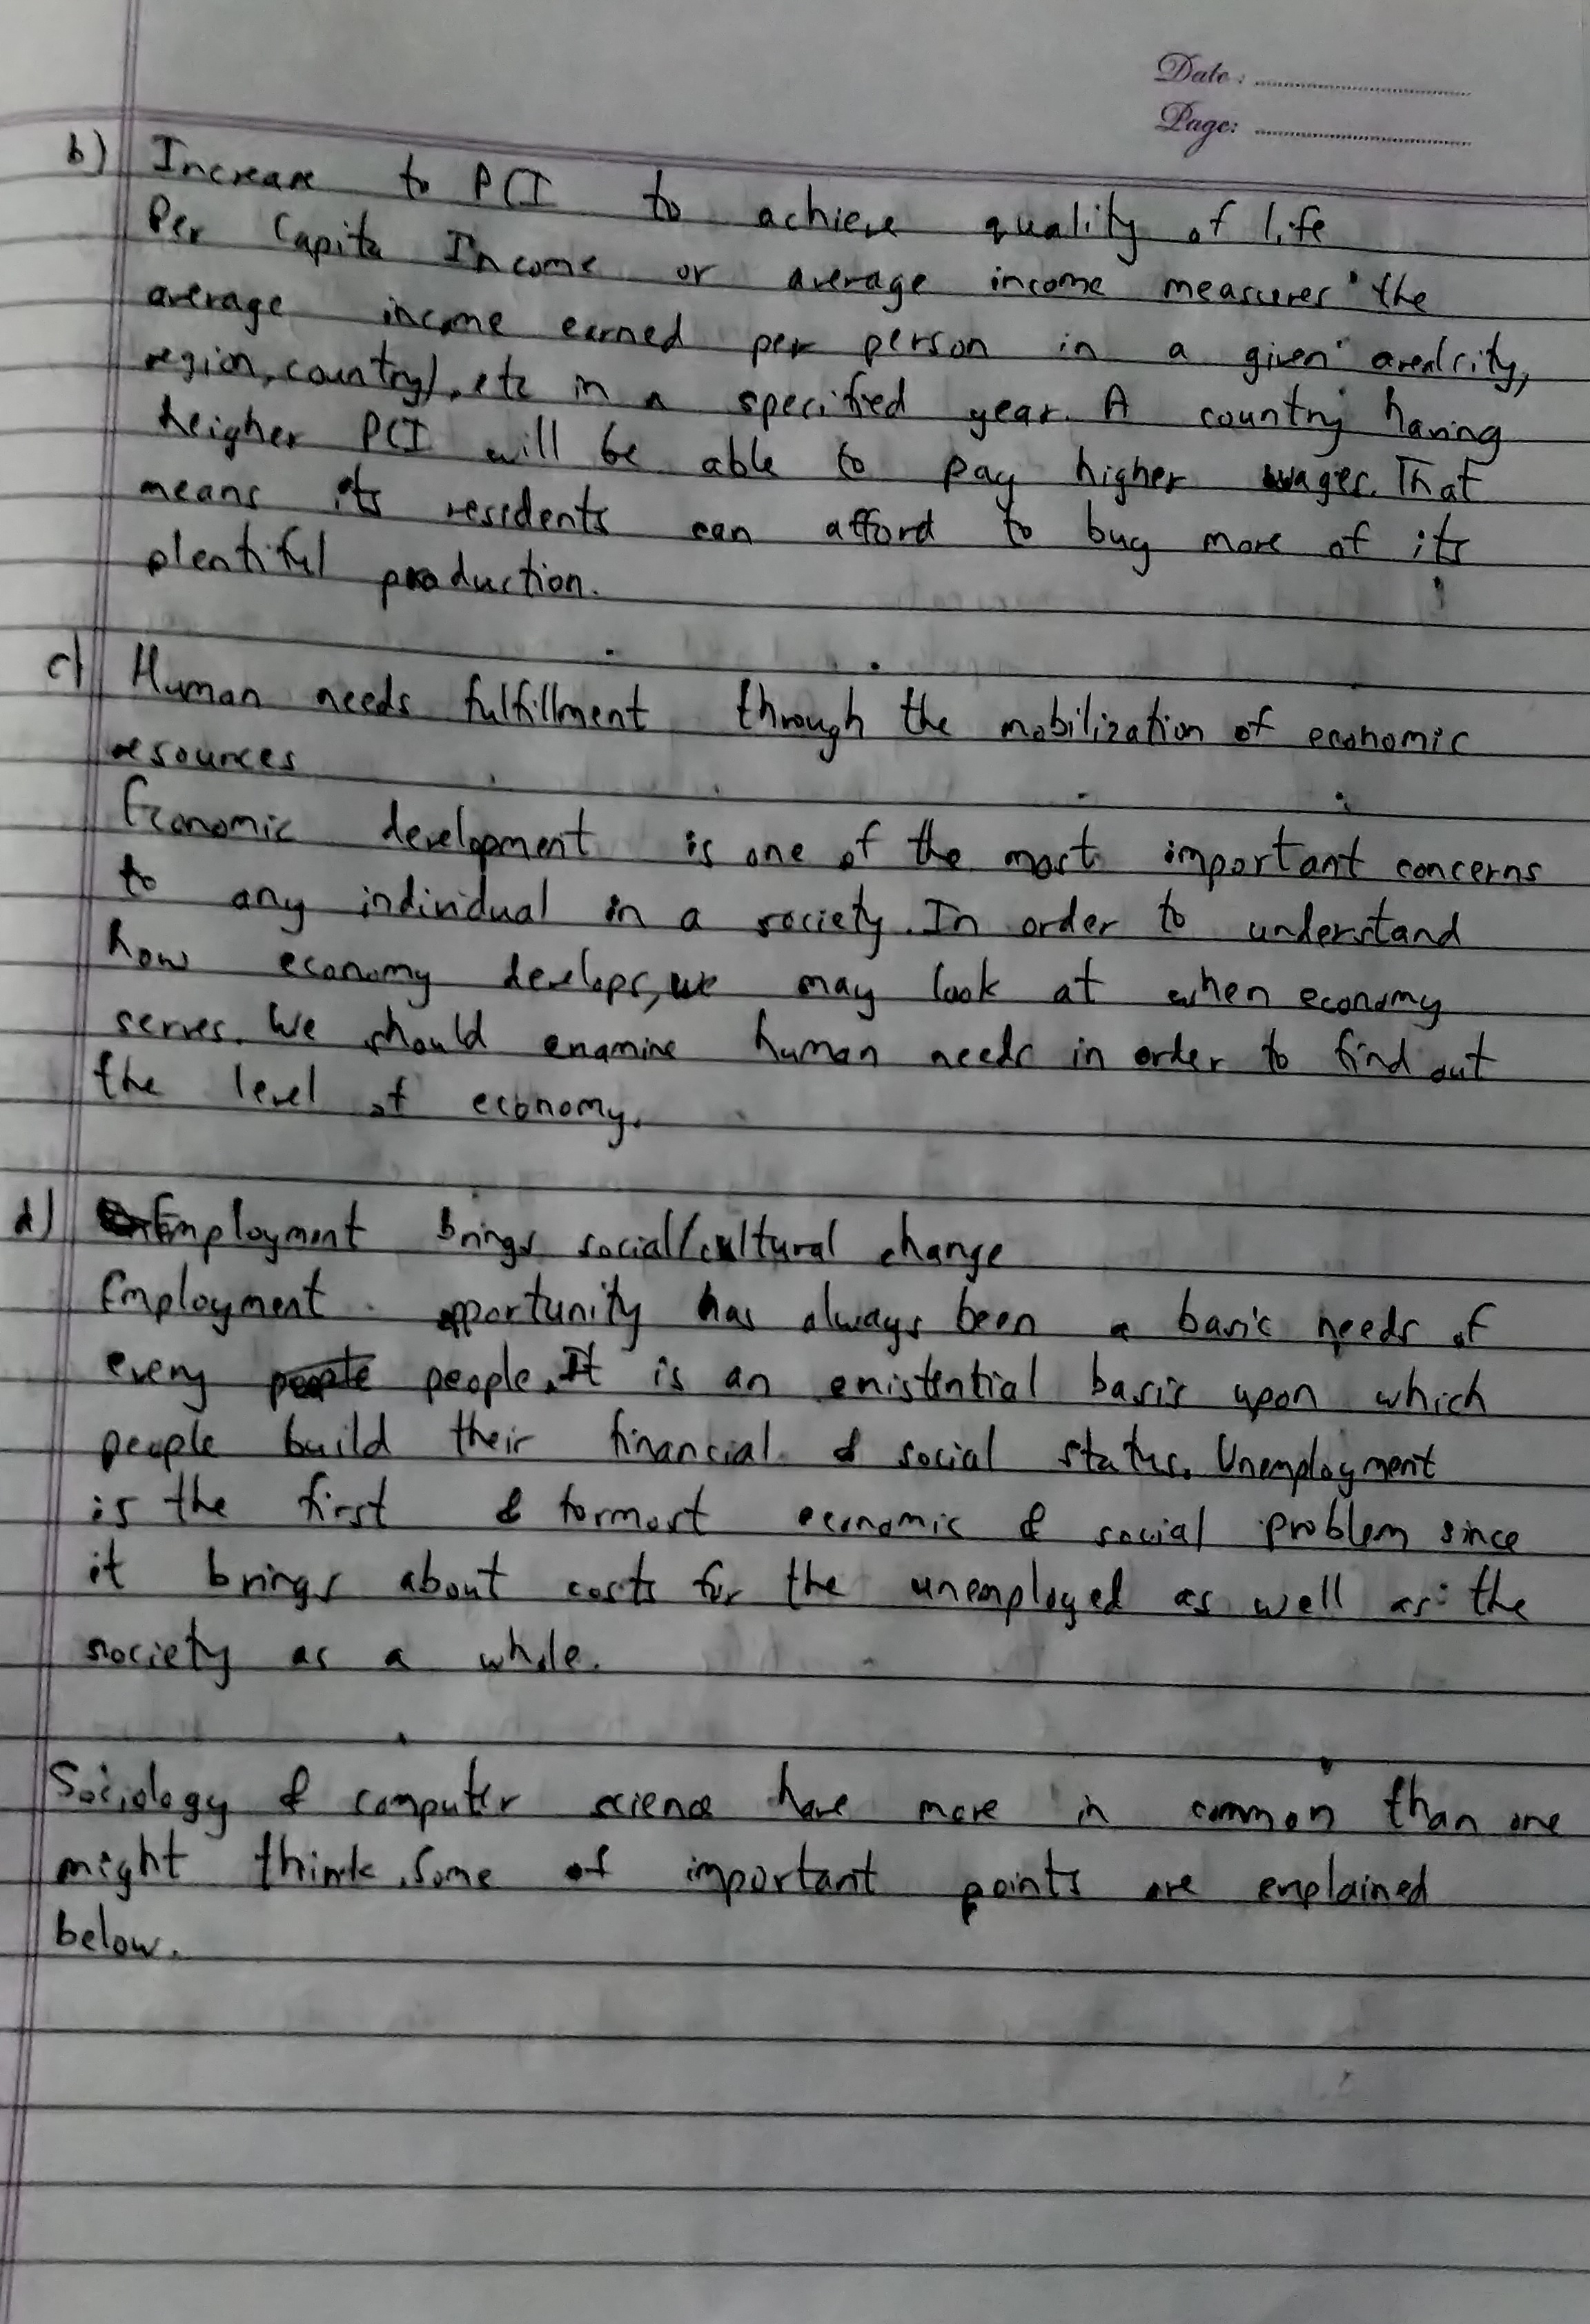 Date :
Page:
b) Increase to PCI to achieve quality of life
Per Capita Income or average income measures the
average income earned per person in a given area(city,
region, country), etc in a specified year. A country having
heigher PCI will be able to pay higher wages. That
means its residents can afford to buy more of its
plentiful production.
c) Human needs fulfillment through the mobilization of economic
resources
Economic development is one of the most important concerns
to any individual in a society. In order to understand
how economy develops, we may look at when economy
serves. We should examine human needs in order to find out
the level of economy.
d) Employment brings social/cultural change
Employment opportunity has always been a basic needs of
every people people. It is an existential basis upon which
people build their financial & social status. Unemployment
is the first & formost economic & social problem since
it brings about costs for the unemployed as well as the
society as a whole.
Sociology & computer science have more in common than one
might think. Some of important points are explained
below.